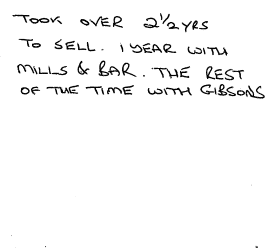 TOOK OVER 2½ YRS
TO SELL. 1 YEAR WITH
MILLS & BAR. THE REST
OF THE TIME WITH GIBSONS